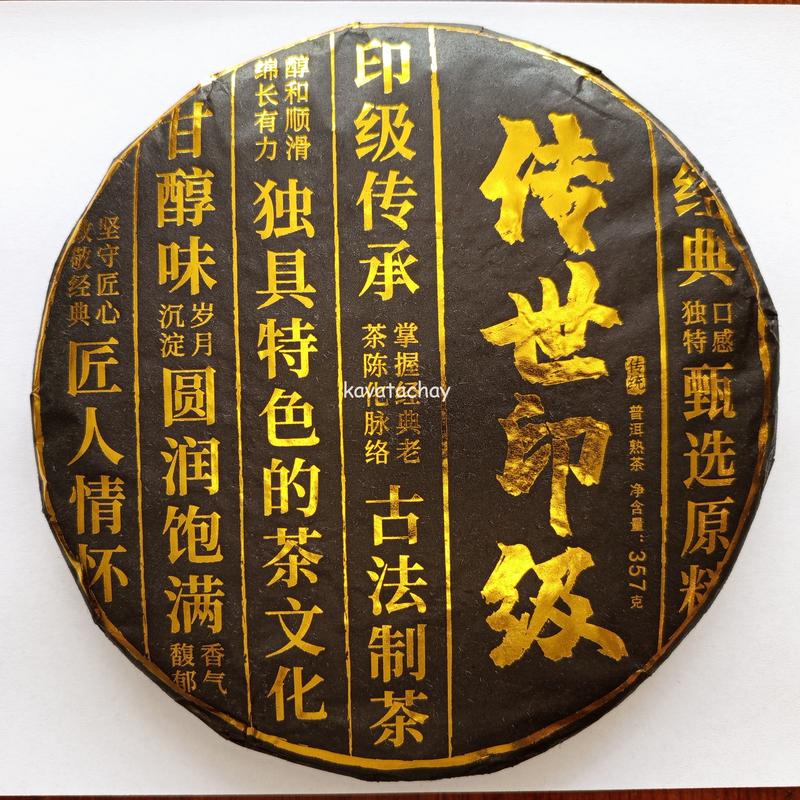 经典
口感
独特
甄选原料
传世印级
传统
普洱熟茶 净含量：357克
印级传承
掌握经典老
茶陈化脉络
古法制茶
醇和顺滑
绵长有力
独具特色的茶文化
甘醇味
岁月
沉淀
圆润饱满
香气
馥郁
坚守匠心
致敬经典
匠人情怀
kavatachay